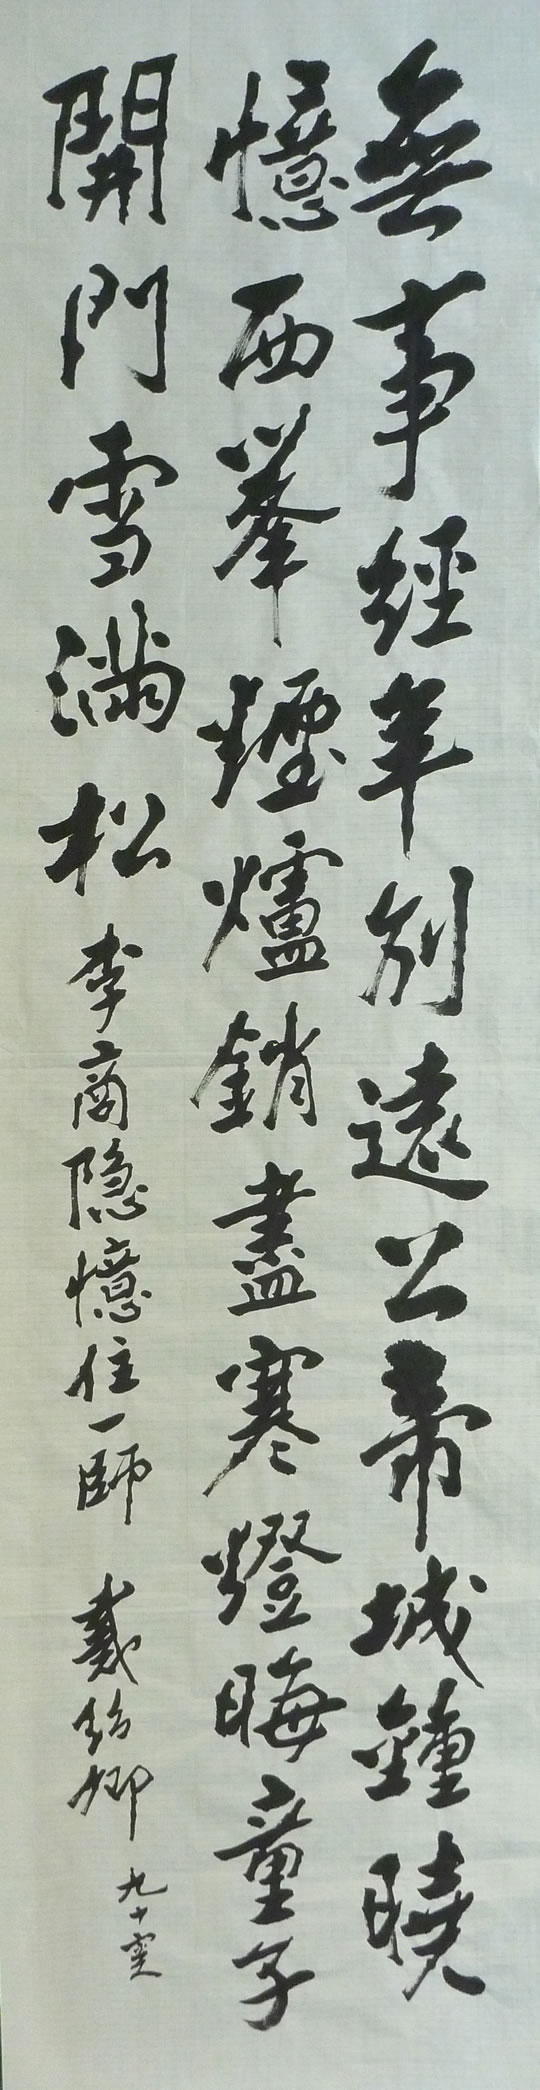 無事經年別遠公帝城鐘曉
憶西峯煙爐銷盡寒燈晦童子
開門雪滿松
李商隐憶住一師
戴
九十